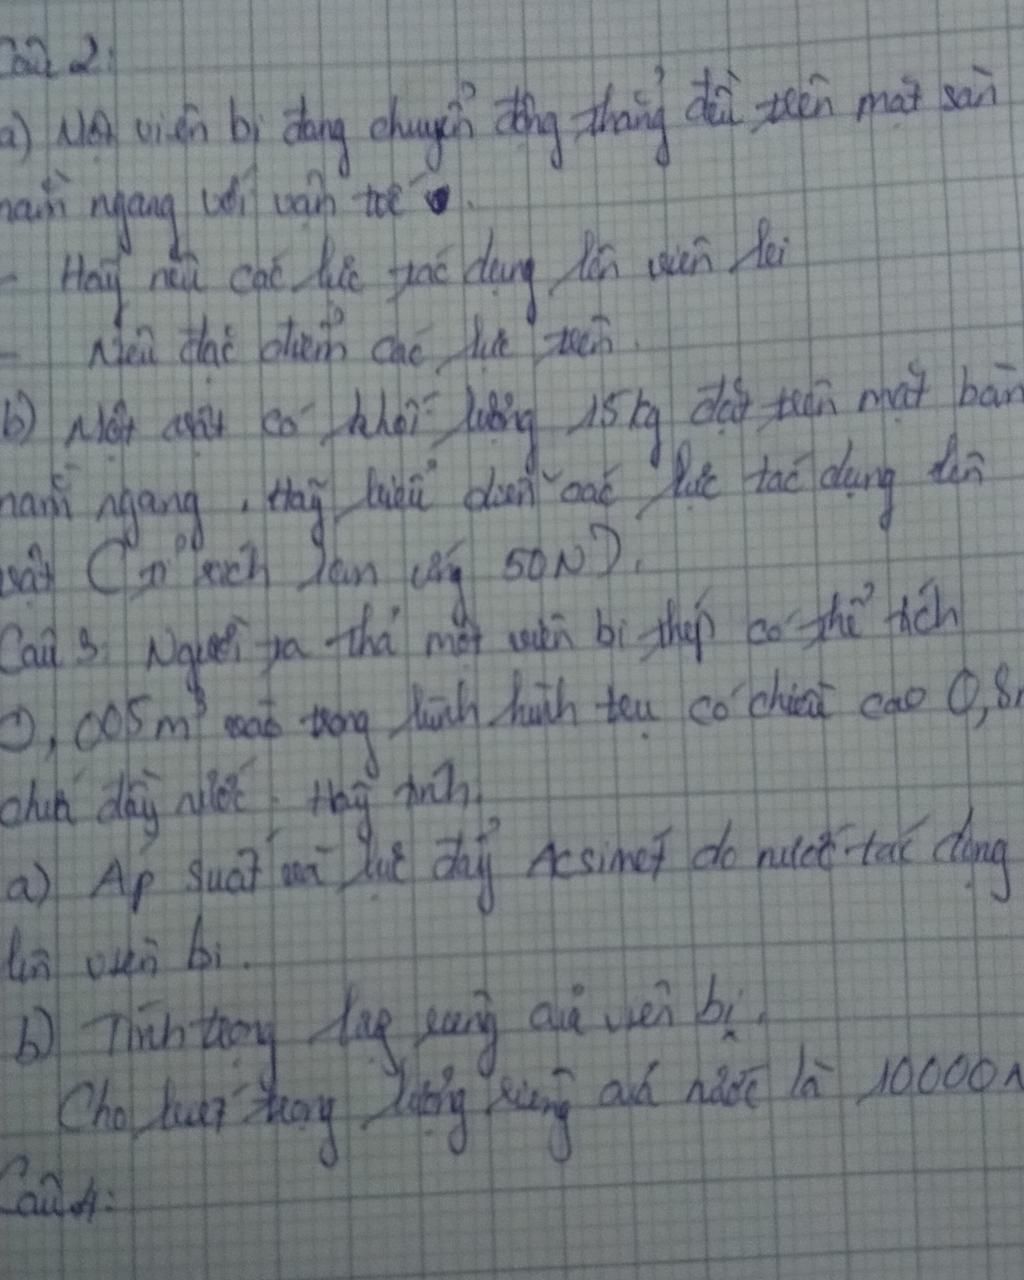 Câu 2:
a) Một viên bi đang chuyển động thẳng đều trên mặt sàn
nằm ngang với vận tốc v.
- Hãy nêu các lực tác dụng lên viên bi
- Nêu đặc điểm các lực trên.
b) Một vật có khối lượng 15kg đặt trên mặt bàn
nằm ngang. Hãy biểu diễn các lực tác dụng lên
vật (Tỉ xích 1cm ứng 50N).
Câu 3: Người ta thả một viên bi thép có thể tích
0,005m³ vào trong bình hình trụ có chiều cao 0,8m
chứa đầy nước. Hãy tính.
a) Áp suất và lực đẩy Acsimet do nước tác dụng
lên viên bi.
b) Tính trọng lượng riêng của viên bi.
Cho biết trọng lượng riêng của nước là 10000N
Câu 4: